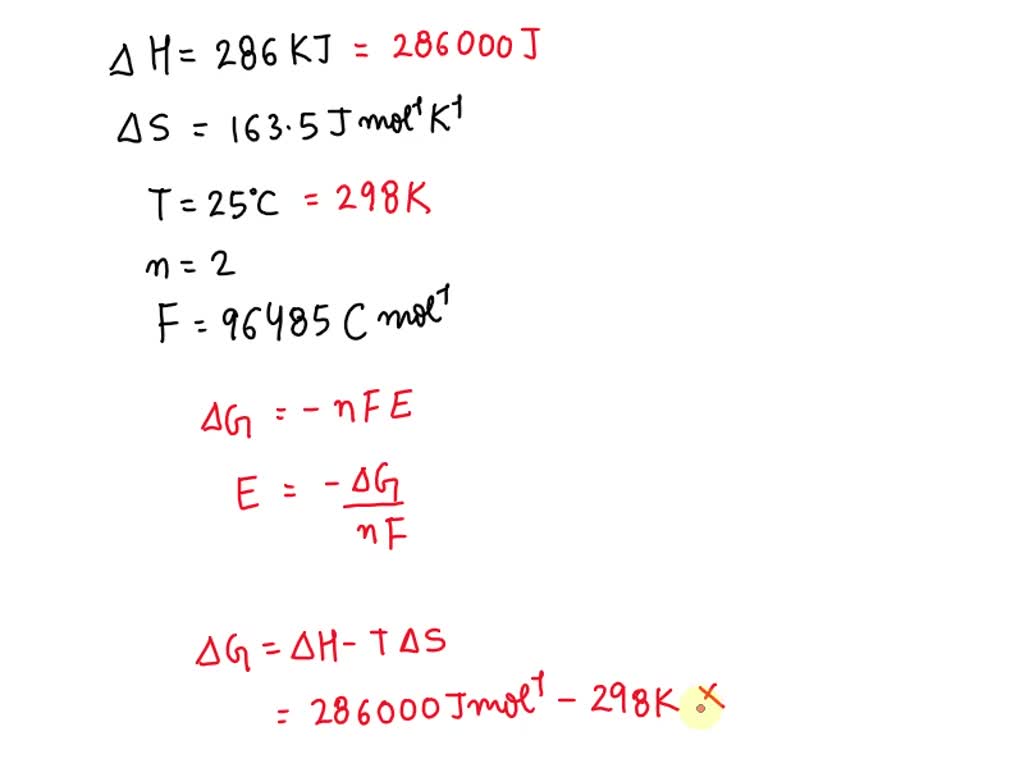 ΔH = 286 KJ = 286000 J
ΔS = 163.5 J mol⁻¹ K⁻¹
T = 25°C = 298 K
n = 2
F = 96485 C mol⁻¹
ΔG = - nFE
E = - ΔG / nF
ΔG = ΔH - TΔS
= 286000 J mol⁻¹ - 298 K ×